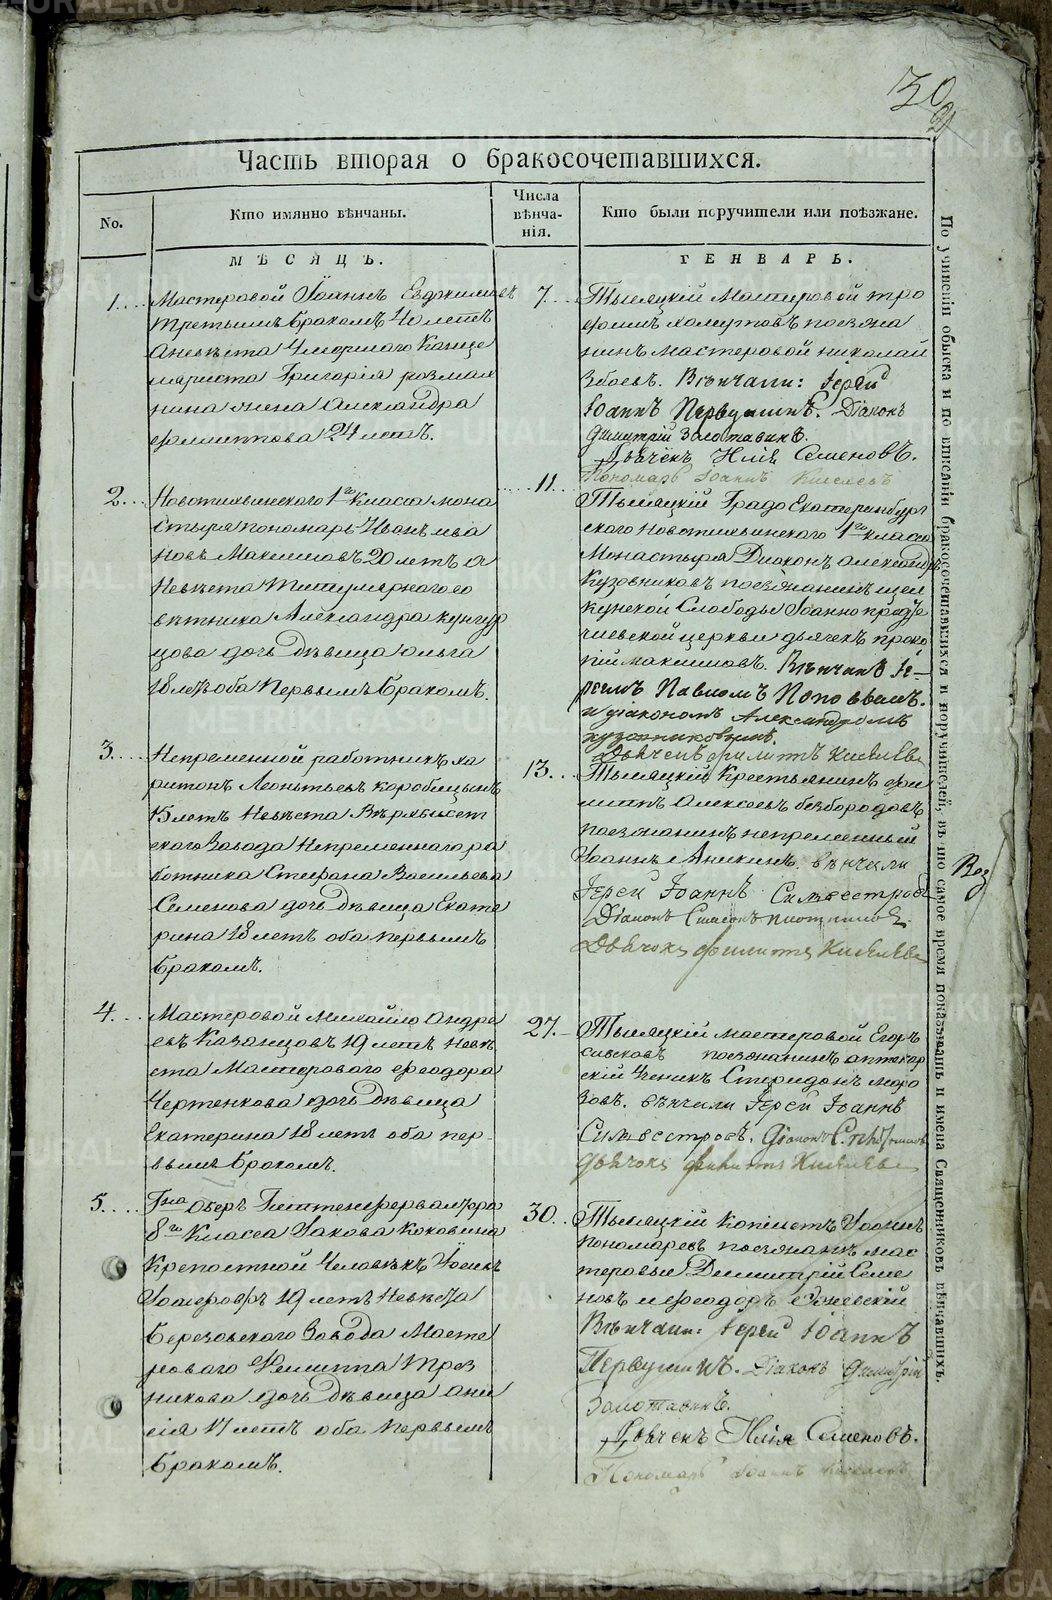 30
Часть вторая о бракосочетавшихся.
No.
Кто имянно вѣнчаны.
Числа вѣнча-нія.
Кто были поручители или поѣзжане.
МѢСЯЦЪ.
ГЕНВАРЬ.
1.
Мастеровой Іоаннъ
третьимъ бракомъ 40 летъ
аневѣста Умершаго Канце
ляриста Григорія
жена Александра
Филиппова 24 летъ.
7.
Тысяцкій Мастеровой тро
фимъ поезжа
нинъ мастеровой николай
Збоевъ. Вѣнчали: Іерей
Іоаннъ Первушинъ. Діаконъ
Димитрій Золотавинъ.
Дьячекъ Илія Семеновъ.
Пономарь Іоаннъ Киселевъ
2.
Новотихвинского 1го класса мона
стыря пономарь Иванъ ива
новъ Макеимовъ 20 летъ а
Невѣста Титулярного со
вѣтника Александра кунгур
цова дочь дѣвица ольга
18 летъ оба первымъ бракомъ.
11.
Тысяцкій Градо Екатеринбург
ского новотихвинского 1го класса
Монастыря Диаконъ александръ
Кузовниковъ поезжанинъ щел
кунской Слободы Іоанно предте
чиевской церкви дьячекъ проко
пій макеимовъ. Вѣнчанъ Іе-
реемъ Павломъ Поповымъ.
и діакономъ Александромъ
кузовниковымъ.
Дьячекъ филиппъ Киселевъ
3.
Непременной работникъ ха
ритонъ Леонтьевъ коробицынъ
летъ Невѣста Верхъисет
ского Завода Непременнаго ра
ботника Стефана Васильева
Семенова дочь дѣвица Екате
рина 18 летъ оба первымъ
бракомъ.
13.
Тысяцкій Крестьянинъ фи
липпъ Алексеевъ безбородовъ
поезжанинъ непременный
Іоаннъ Аникинъ. вѣнчали
Іерей Іоаннъ Сильвестровъ
Діаконъ Симеонъ плотниковъ.
Дьячокъ филиппъ Киселевъ
4.
Мастеровой михайло андре
евъ Казанцовъ 19 летъ неве
ста Мастерового феодора
Чертенкова дочь дѣвица
Екатерина 18 летъ оба пер
вымъ бракомъ.
27.
Тысяцкій мастеровой Егоръ
сивковъ поезжанинъ аптекар
скій Ученикъ Спиридонъ моро
зовъ. вѣнчали Іерей Іоаннъ
Сильвестровъ. Діаконъ
дьячокъ филиппъ Киселевъ
5.
Гна Оберъ Гиттенфервалтера
8го Класса Іакова Коковина
Крепостной Человѣкъ
19 летъ Невѣста
Березовского Завода Масте
рового Филиппа Трез
никова дочь дѣвица ани
сія 17 летъ оба первымъ
бракомъ.
30.
Тысяцкій Копіистъ Іоаннъ
пономаревъ поезжанъ мас
теровые Димитрій Семе
новъ и феодоръ
Вѣнчали: Іерей Іоаннъ
Первушинъ. Діаконъ Димитрій
Золотавинъ.
Дьячекъ Илія Семеновъ.
Пономарь Іоаннъ Киселевъ
По учиненіи обыска и по вписаніи бракосочетавшихся и поручителей, въ то самое время показывать и имена Священниковъ вѣнчавшихъ.
METRIKI.GASO-URAL.RU